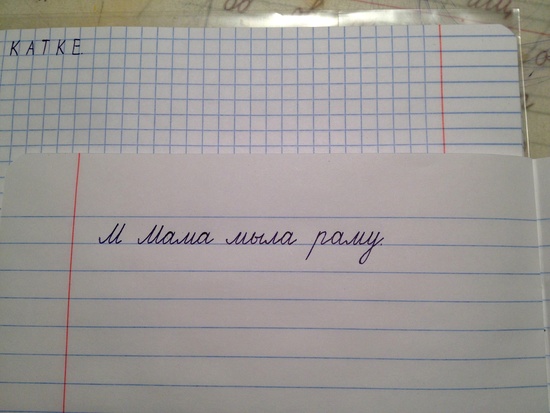 КАТКЕ
М Мама мыла раму.